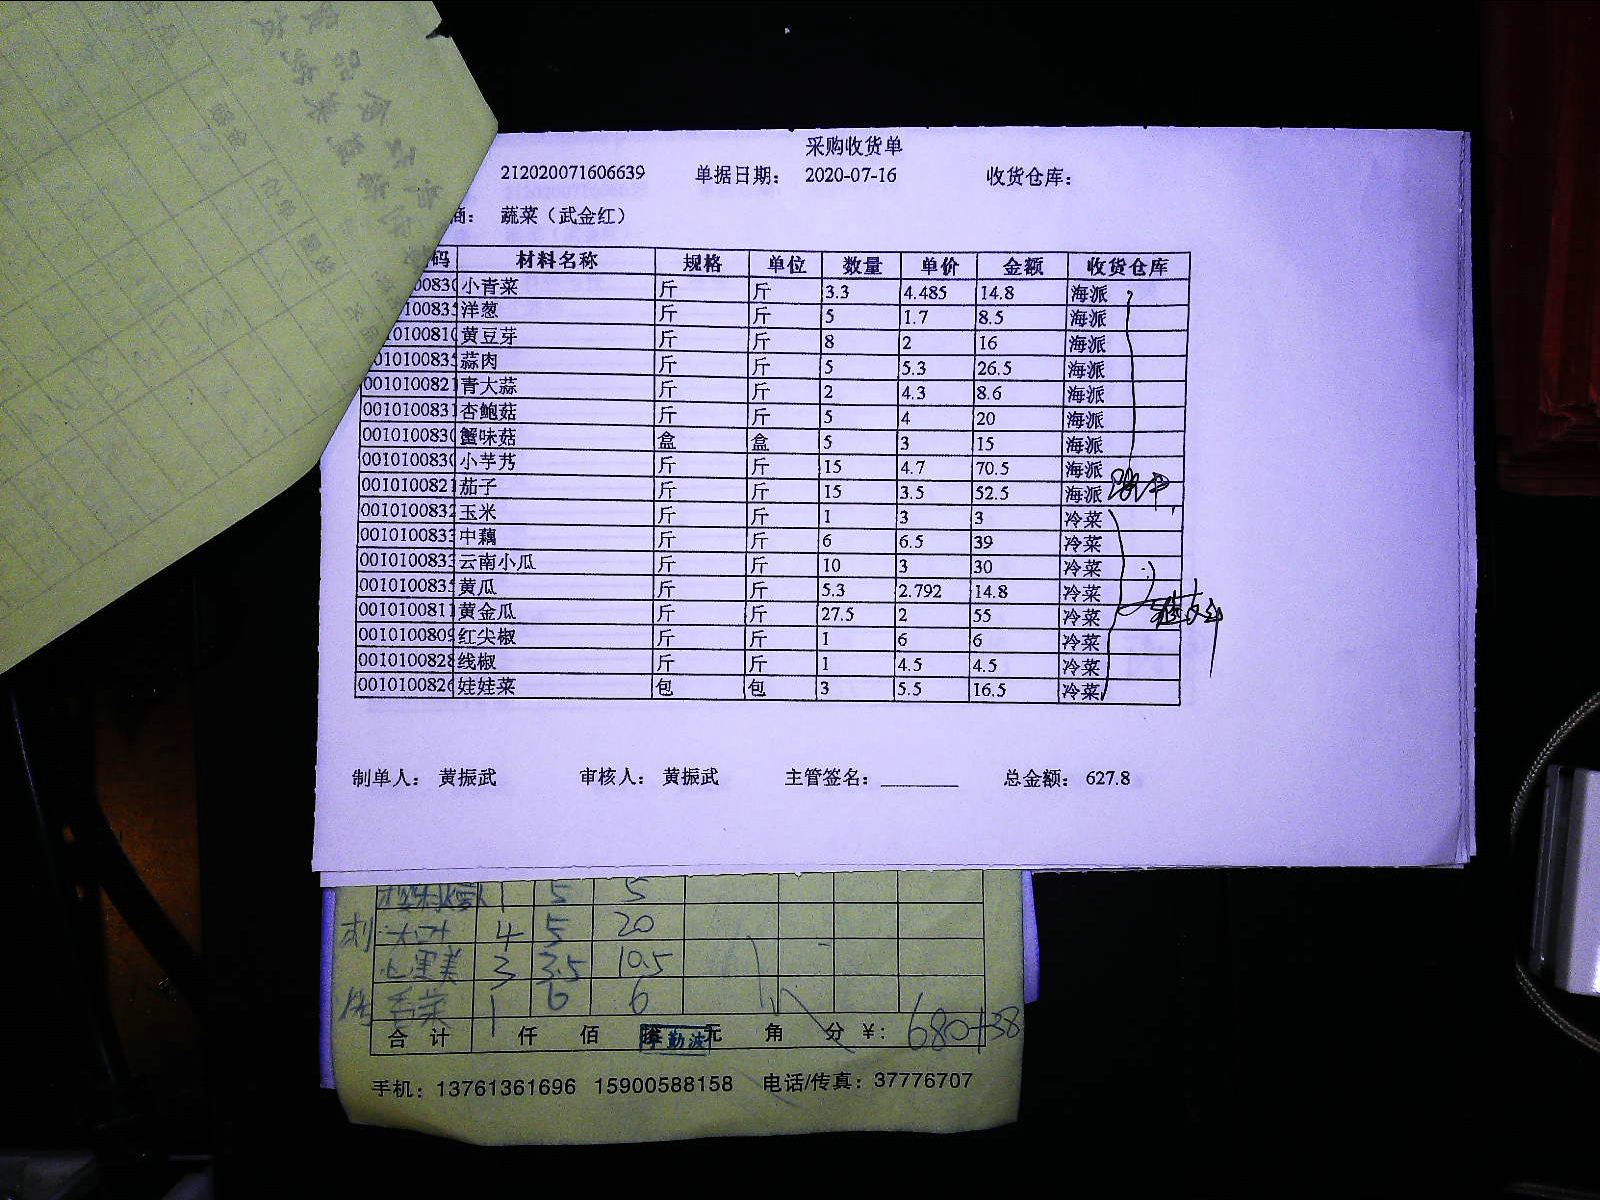 采购收货单
212020071606639 单据日期： 2020-07-16 收货仓库：
商： 蔬菜（武金红）
码 材料名称 规格 单位 数量 单价 金额 收货仓库
小青菜 斤 斤 3.3 4.485 14.8 海派
洋葱 斤 斤 5 1.7 8.5 海派
黄豆芽 斤 斤 8 2 16 海派
蒜肉 斤 斤 5 5.3 26.5 海派
0010100821 青大蒜 斤 斤 2 4.3 8.6 海派
0010100831 杏鲍菇 斤 斤 5 4 20 海派
001010083 蟹味菇 盒 盒 5 3 15 海派
001010083 小芋艿 斤 斤 15 4.7 70.5 海派
0010100821 茄子 斤 斤 15 3.5 52.5 海派
0010100832 玉米 斤 斤 1 3 3 冷菜
001010083 中藕 斤 斤 6 6.5 39 冷菜
001010083 云南小瓜 斤 斤 10 3 30 冷菜
001010083 黄瓜 斤 斤 5.3 2.792 14.8 冷菜
0010100811 黄金瓜 斤 斤 27.5 2 55 冷菜
0010100809 红尖椒 斤 斤 1 6 6 冷菜
0010100828 线椒 斤 斤 1 4.5 4.5 冷菜
001010082 娃娃菜 包 包 3 5.5 16.5 冷菜
制单人： 黄振武 审核人： 黄振武 主管签名： 总金额： 627.8
1 5 5
4 5 20
心里美 3 3.5 10.5
1 6 6
合计 仟 佰 元 角 分 ¥： 680+38
手机：13761361696 15900588158 电话/传真：37776707